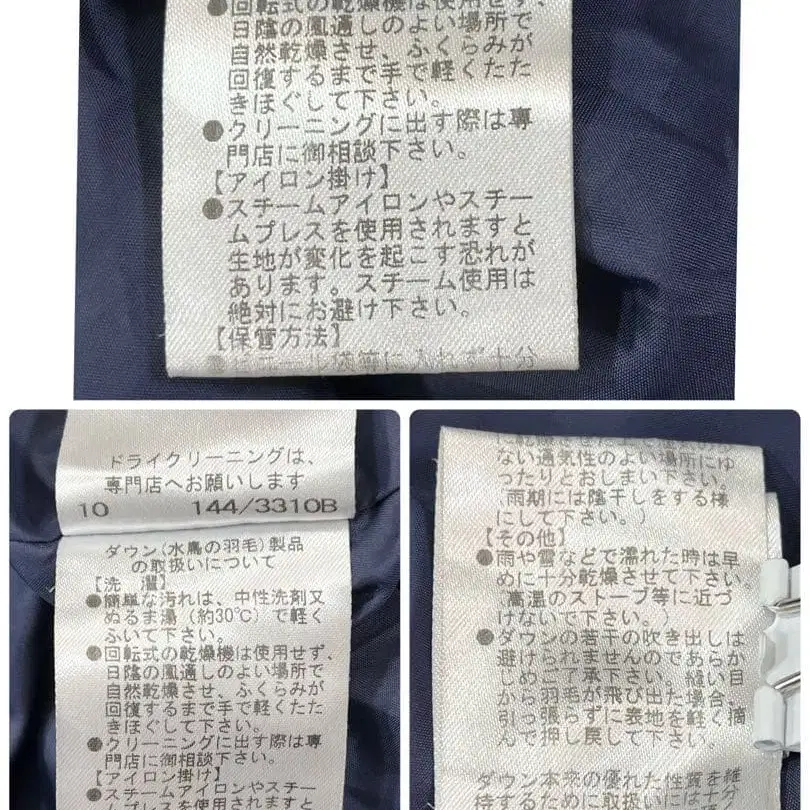 ●回転式の乾燥機は使用せず、
日陰の風通しのよい場所で
自然乾燥させ、ふくらみが
回復するまで手で軽くたた
きほぐして下さい。
●クリーニングに出す際は専
門店に御相談下さい。
【アイロン掛け】
●スチームアイロンやスチー
ムプレスを使用されますと
生地が変化を起こす恐れが
あります。スチーム使用は
絶対にお避け下さい。
【保管方法】
ドライクリーニングは、
専門店へお願いします
10 144/3310B
ダウン(水鳥の羽毛)製品
の取扱いについて
【洗 濯】
●簡単な汚れは、中性洗剤又
ぬるま湯(約30℃)で軽く
ふいて下さい。
●回転式の乾燥機は使用せず、
日陰の風通しのよい場所で
自然乾燥させ、ふくらみが
回復するまで手で軽くたた
きほぐして下さい。
●クリーニングに出す際は専
門店に御相談下さい。
【アイロン掛け】
●スチームアイロンやスチー
ムプレスを使用されますと
に乾燥させた上で
ない通気性のよい場所にゆ
ったりとおしまい下さい。
雨期には陰干しをする様
にして下さい。)
【その他】
●雨や雪などで濡れた時は早
めに十分乾燥させて下さい。
(高温のストーブ等に近づ
けないで下さい。)
●ダウンの若干の吹き出しは
避けられませんのであらか
じめご了承下さい。縫い目
から羽毛が飛び出た場合、
引っ張らずに表地を軽く摘
んで押し戻して下さい。
ダウン本来の優れた性質を維
持するために取扱いには十分